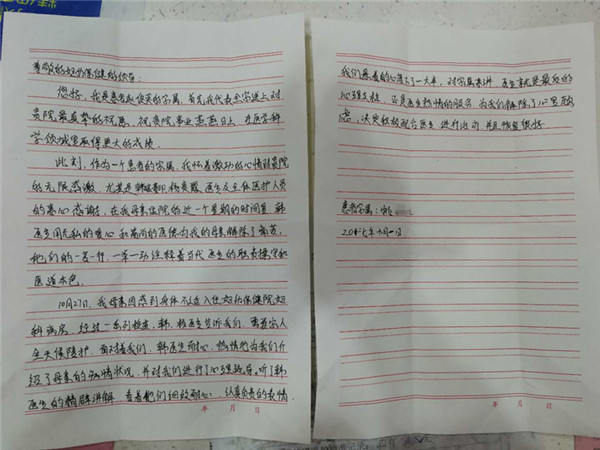 尊敬的妇幼保健的领导:
您好,我是患者赵俊英的家属,首先我代表全家送上对
贵院最真挚的祝愿,祝贵院事业蒸蒸日上,在医学科
学领域里取得更大的成绩。
此刻,作为一个患者的家属,我怀着激动的心情对贵院
的无限感激,尤其是韩 杨爱殿医生及全体医护人员
的衷心感谢,在我母亲住院的近一个星期的时间里,韩
医生用无私的爱心和高尚的医德为我的母亲解除了痛苦,
他们的一言一行,一举一动诠释着当代医生的职责操守和
医道本色。
10月27日,我母亲因感到身体不适入住妇幼保健院妇
科病房,经过一系列检查,韩、杨医生告诉我们,需要家人
全天候陪护,面对着我们,韩医生耐心、热情的为我们介
绍了母亲的病情状况,并对我们进行了心理疏导,听了韩
医生的精辟讲解,看着他们细致耐心、认真负责的表情
年 月 日
我们悬着的心落下了一大半,对家属来讲,医生就是最好的
心理支柱,正是医生热情的服务,为我们解除了心里顾
虑,决定积极配合医生进行治疗,并且恢复很好.
患者家属:
年 月 日